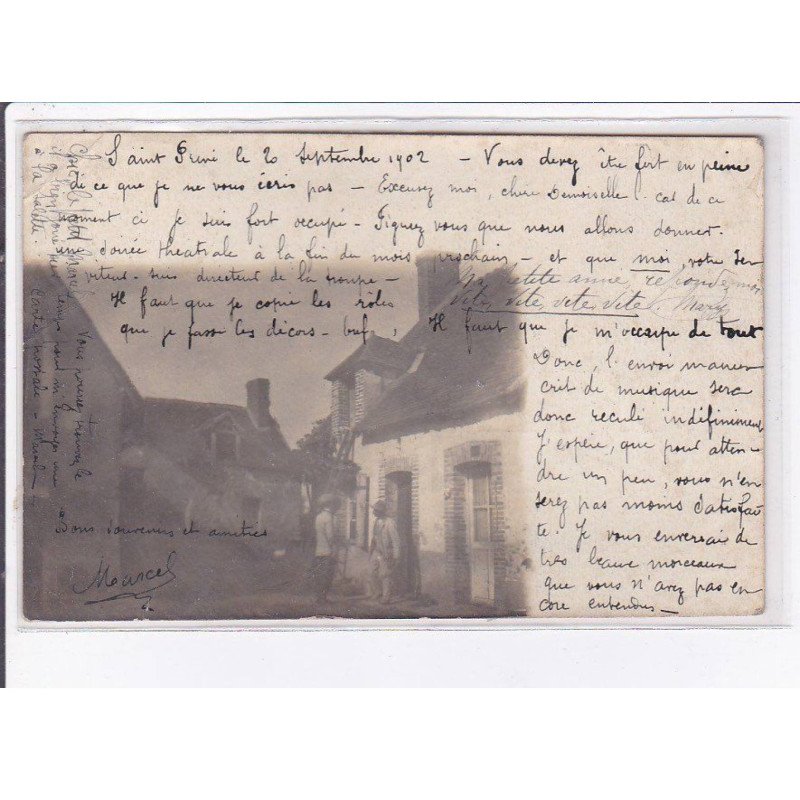 Saint Privé le 20 Septembre 1902 - Vous devez être fort en peine
de ce que je ne vous écris pas - Excusez moi, chere Demoiselle car de ce
moment ci je suis fort occupé - Figurez vous que nous allons donner
une soirée théatrale à la fin du mois prochain - et que moi votre ser
viteur - suis directeur de la troupe -
Il faut que je copie les rôles
que je fasse les décors - bref, Il faut que je m'occupe de tout
petite anne, répondez moi
vite, vite, vite, vite. Mary
Donc, l'envoi manus
crit de musique sera
donc reculé indéfiniment
J'espère, que pour atten
dre un peu, vous n'en
serez pas moins satisfai
te. Je vous enverrai de
tres beaux morceaux
que vous n'avez pas en
core entendus -
Bons souvenirs et amitiés
Marcel
Vous pouvez trouver le
temps pour m'envoyer une
Carte postale -